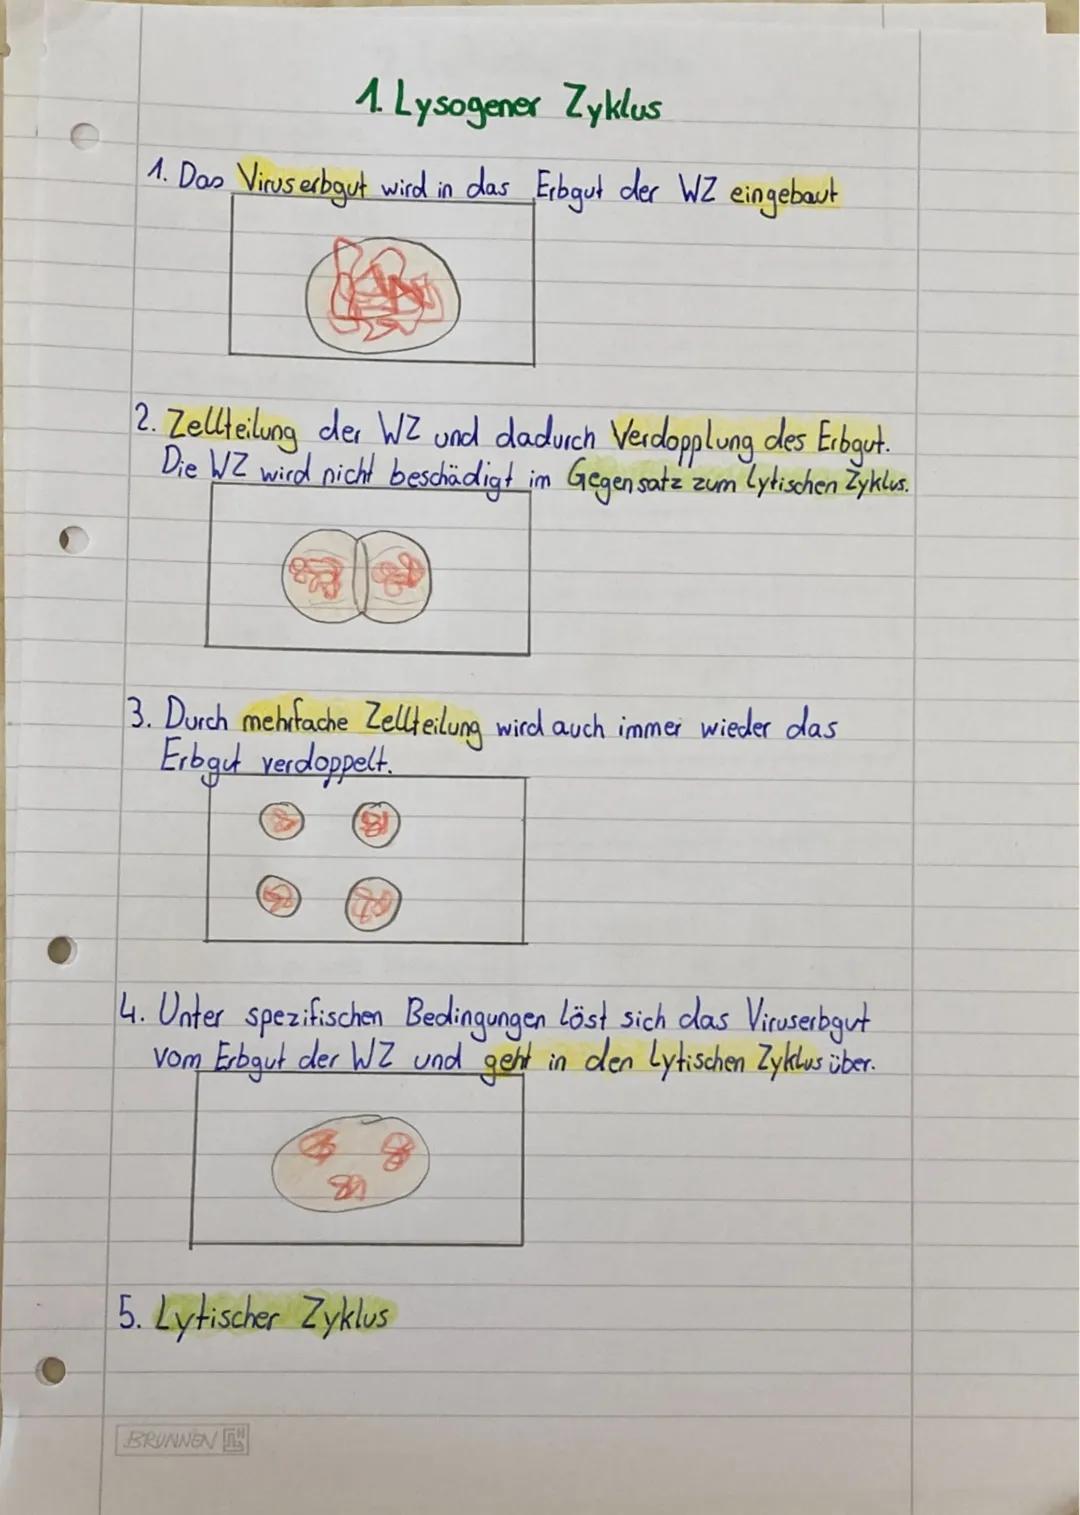 1. Lysogener Zyklus
1. Das Viruserbgut wird in das Erbgut der WZ eingebaut
2. Zellteilung der WZ und dadurch Verdopplung des Erbgut.
Die WZ wird nicht beschädigt im Gegensatz zum Lytischen Zyklus.
3. Durch mehrfache Zellteilung wird auch immer wieder das
Erbgut verdoppelt.
4. Unter spezifischen Bedingungen löst sich das Viruserbgut
vom Erbgut der WZ und geht in den Lytischen Zyklus über.
5. Lytischer Zyklus
BRUNNEN